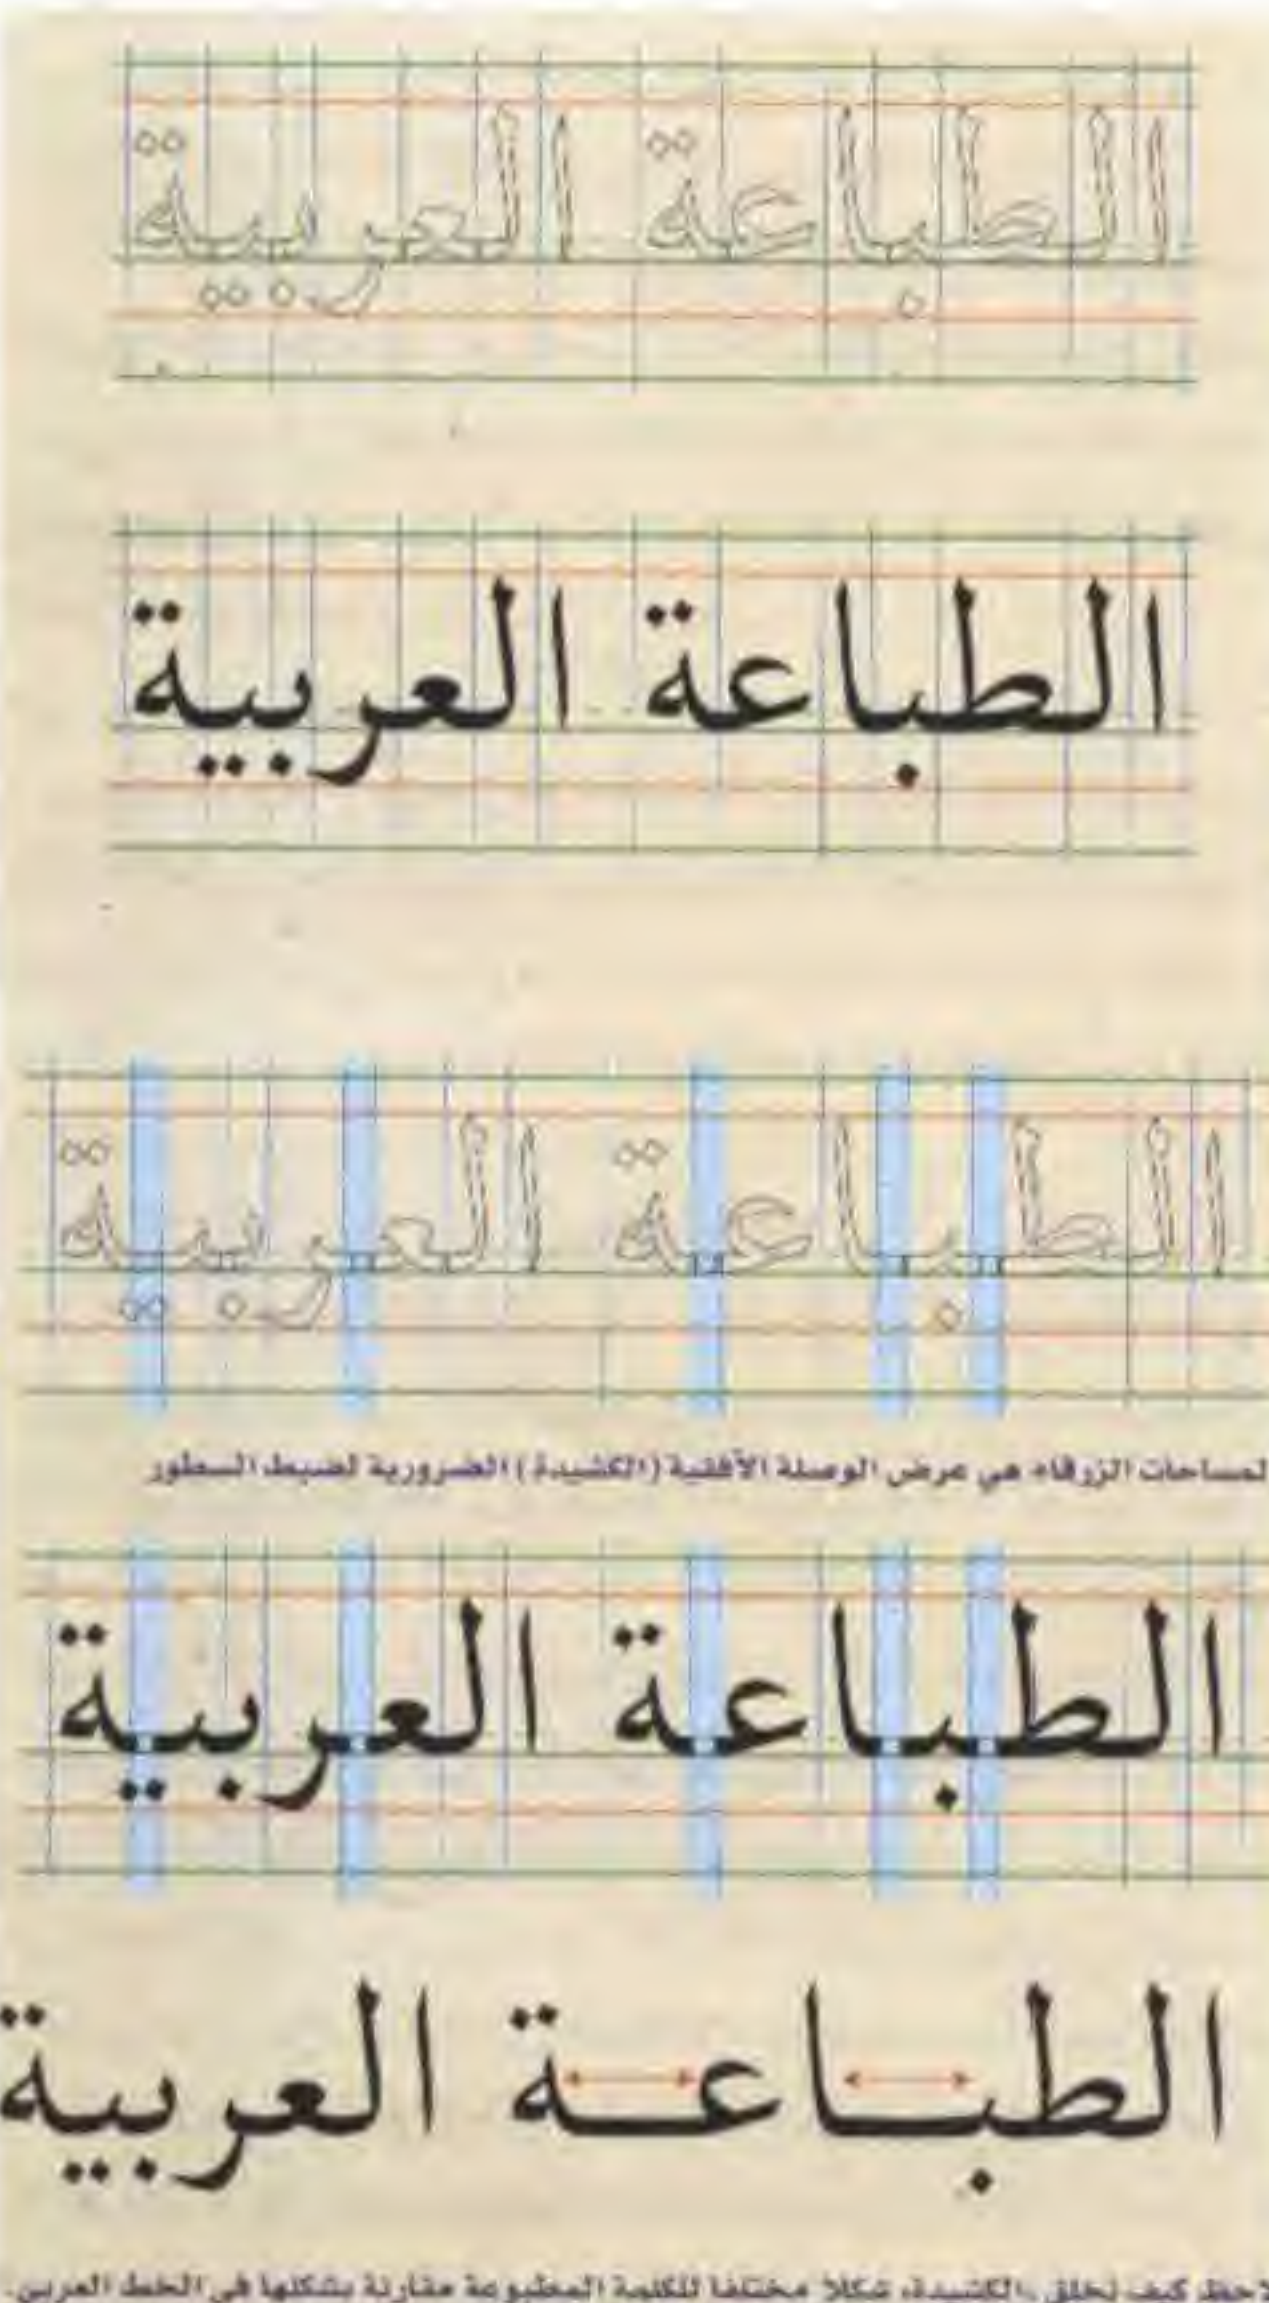 الطباعة العربية
الطباعة العربية
الطباعة العربية
المساحات الزرقاء هي عرض الوصلة الأفقية (الكشيدة) الضرورية لضبط السطور
الطباعة العربية
الطبـاعـة العربية
لاحظ كيف تخلق الكشيدة، شكلاً مختلفا للكلمة المطبوعة مقارنة بشكلها في الخط العربي.